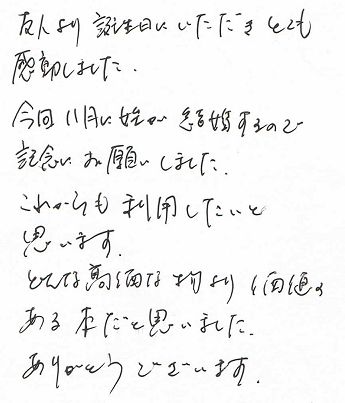 友人より誕生日にいただきとても
感動しました.
今回11月に姪が結婚するので
記念にお願いしました.
これからも利用したいと
思います.
どんな高価な物より価値の
ある本だと思いました.
ありがとうございます.